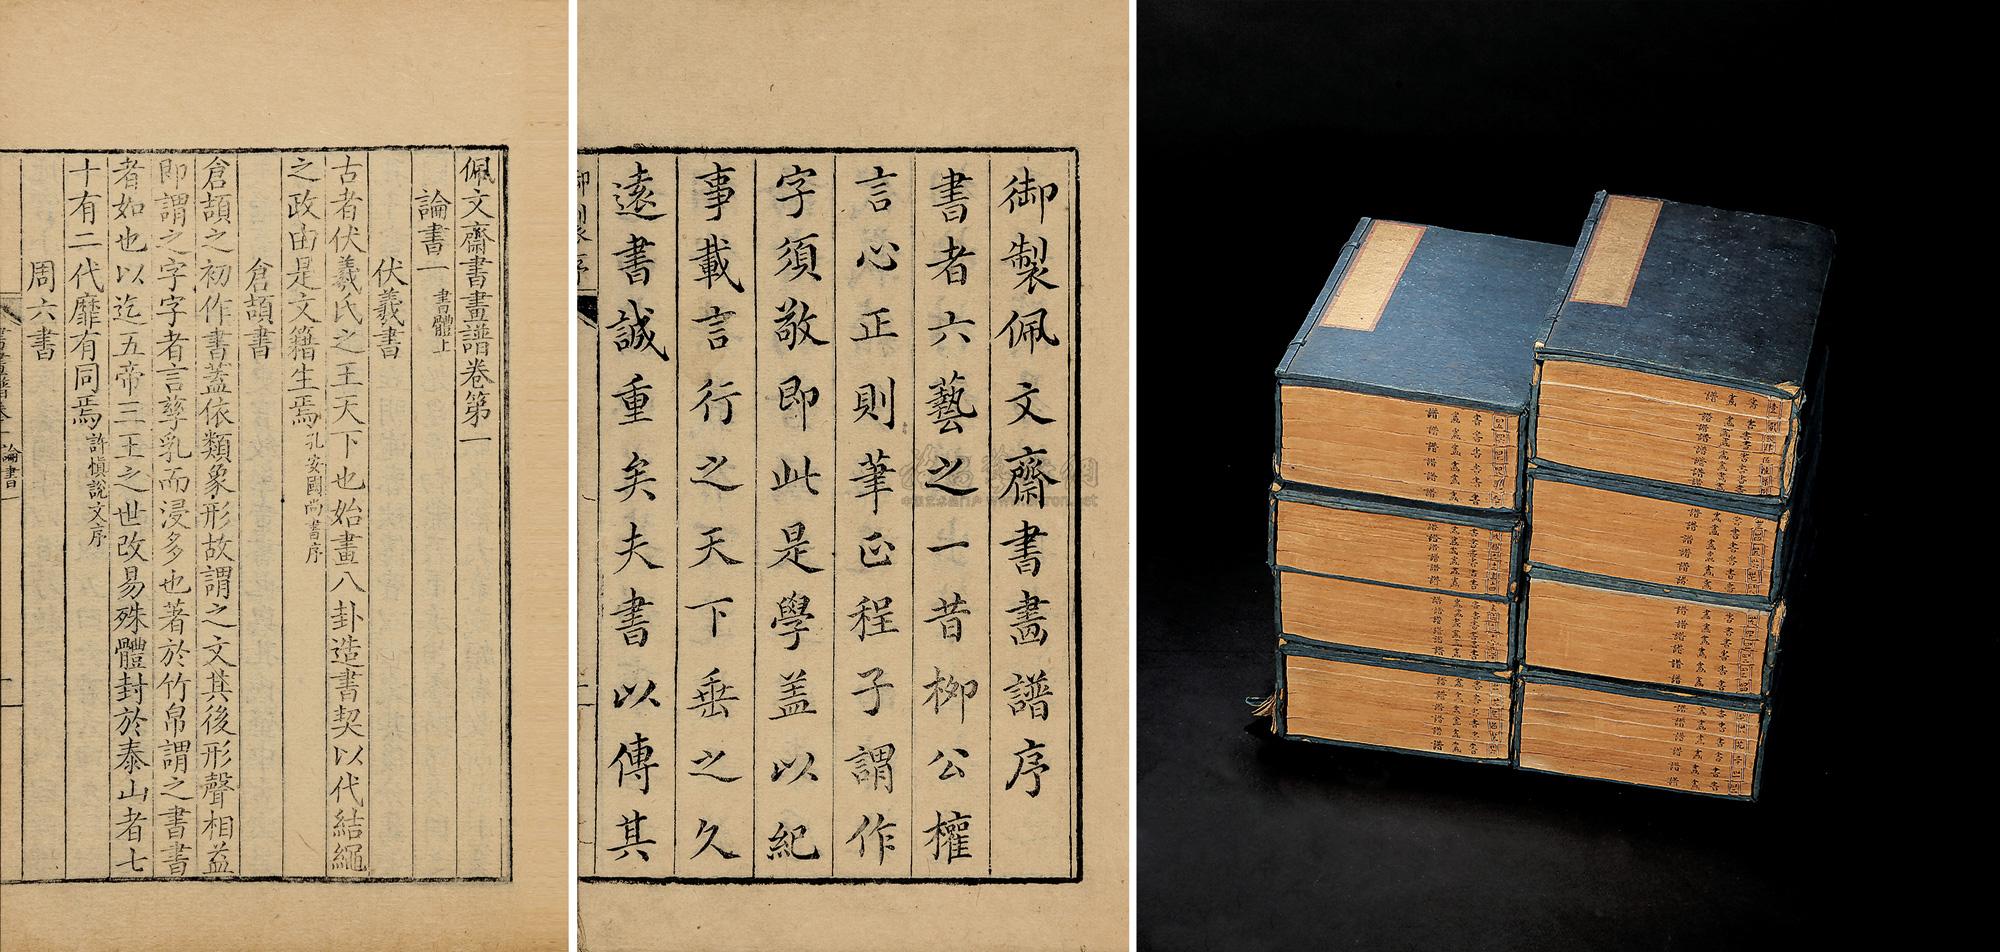 佩文齋書畫譜卷第一
論書一 書體上
伏羲書
古者伏羲氏之王天下也始畫八卦造書契以代結繩
之政由是文籍生焉 孔安國尚書序
倉頡書
倉頡之初作書蓋依類象形故謂之文其後形聲相益
即謂之字字者言孳乳而浸多也著於竹帛謂之書書
者如也以迄五帝三王之世改易殊體封於泰山者七
十有二代靡有同焉 許慎說文序
周六書
論書一
御製佩文齋書畫譜序
書者六藝之一昔柳公權
言心正則筆正程子謂作
字須敬即此是學蓋以紀
事載言行之天下垂之久
遠書誠重矣夫書以傳其
書畫譜